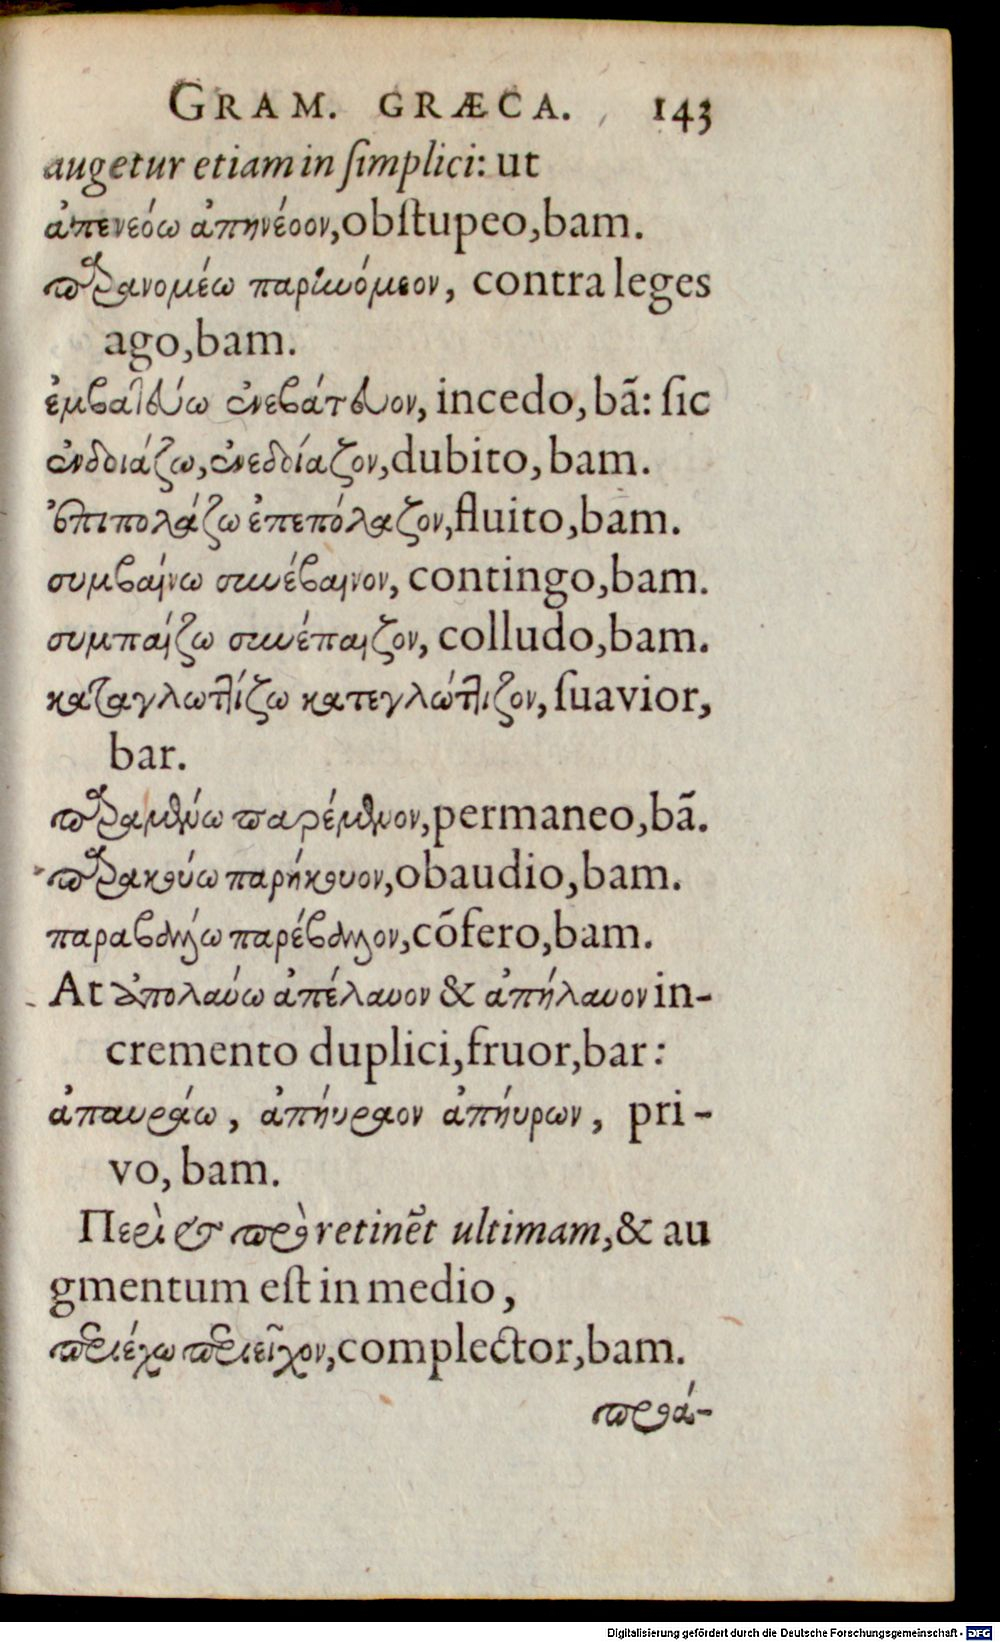 GRAM. GRÆCA. 143
augetur etiam in ſimplici: ut
ἀπενεόω ἀπηνέοον, obſtupeo, bam.
παρανομέω παρηνόμεον, contra leges
ago, bam.
ἐμβατεύω ἐνεβάτευον, incedo, bā: ſic
ἐνδοιάζω, ἐνεδοίαζον, dubito, bam.
ἐπιπολάζω ἐπεπόλαζον, fluito, bam.
συμβαίνω συνέβαινον, contingo, bam.
συμπαίζω συνέπαιζον, colludo, bam.
καταγλωττίζω κατεγλώττιζον, ſuavior,
bar.
παραμένω παρέμενον, permaneo, bā.
παρακούω παρήκουον, obaudio, bam.
παραβάλλω παρέβαλλον, cōfero, bam.
At ἀπολαύω ἀπέλαυον & ἀπήλαυον in-
cremento duplici, fruor, bar:
ἀπαυράω, ἀπήυραον ἀπήυρων, pri-
vo, bam.
Περὶ & πρὸ retinēt ultimam, & au
gmentum eſt in medio,
περιέχω περιεῖχον, complector, bam.
προά-
Digitalisierung gefördert durch die Deutsche Forschungsgemeinschaft - DFG